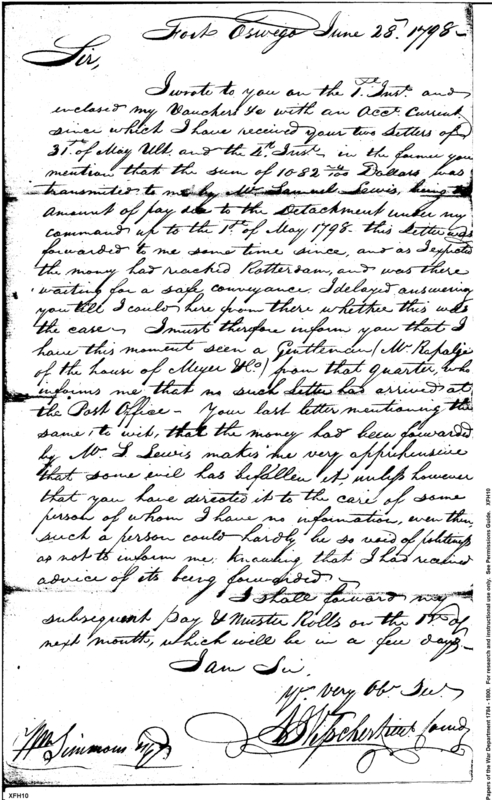 Fort Oswego June 28th 1798-
Sir,
I wrote to you on the 1st Inst and
enclosed my Vouchers &c with an Acct Current
since which I have received your two Letters of
31st of May Ult and the 4th Inst - in the former you
mention that the sum of 1082 Dollars was
transmited to me by Mr Samuel Lewis, being the
amount of pay due to the Detachment under my
command up to the 1st of May 1798 - this Letter was
forwarded to me some time since, and as I expected
the mony had reached Rotterdam, and was there
waiting for a safe conveyance, I delayed answering
you till I could here from there whether this was
the case - I must therefore inform you that I
have this moment seen a Gentleman (Mr Rapalje
of the house of Meyer & Co) from that quarter, who
informs me that no such Letter had arrived at
the Post Office - Your last letter mentioning the
same, to wit, that the money had been forwarded
by Mr S Lewis makes me very apprehensive
that some evil has befallen it unless however
that you have directed it to the care of some
person of whom I have no information, even then
such a person could hardly be so void of politeness
as not to inform me, knowing that I had received
advice of its being forwarded
I shall forward my
subsequent Pay & Muster Rolls on the 1st of
next month, which will be in a few days -
I am Sir
yr very Obt Sert
Wm Simmons Esqr
Papers of the War Department 1784 - 1800. For research and instructional use only. See Permissions Guide. XFH10
XFH10